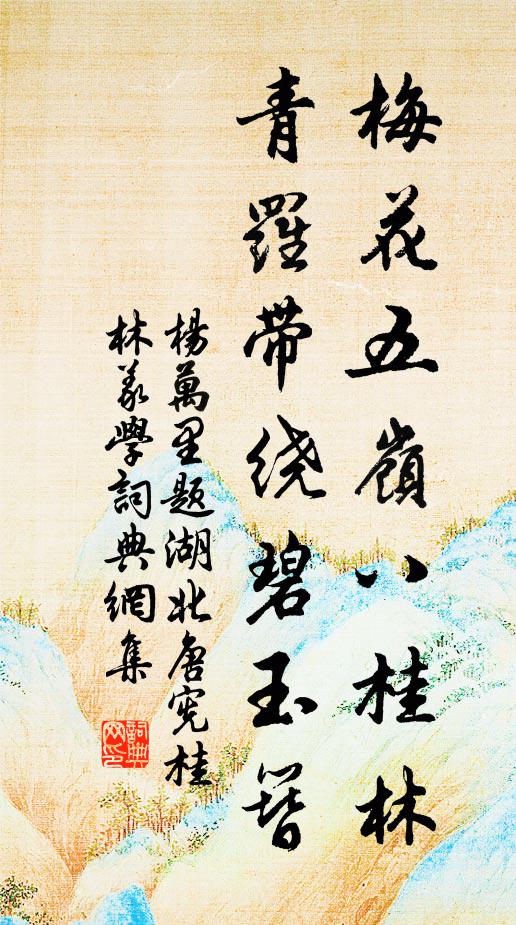 梅花五嶺八桂林
青羅带绕碧玉簪
楊萬里題湖北唐宪桂
林義學詞典網集
詞典網印